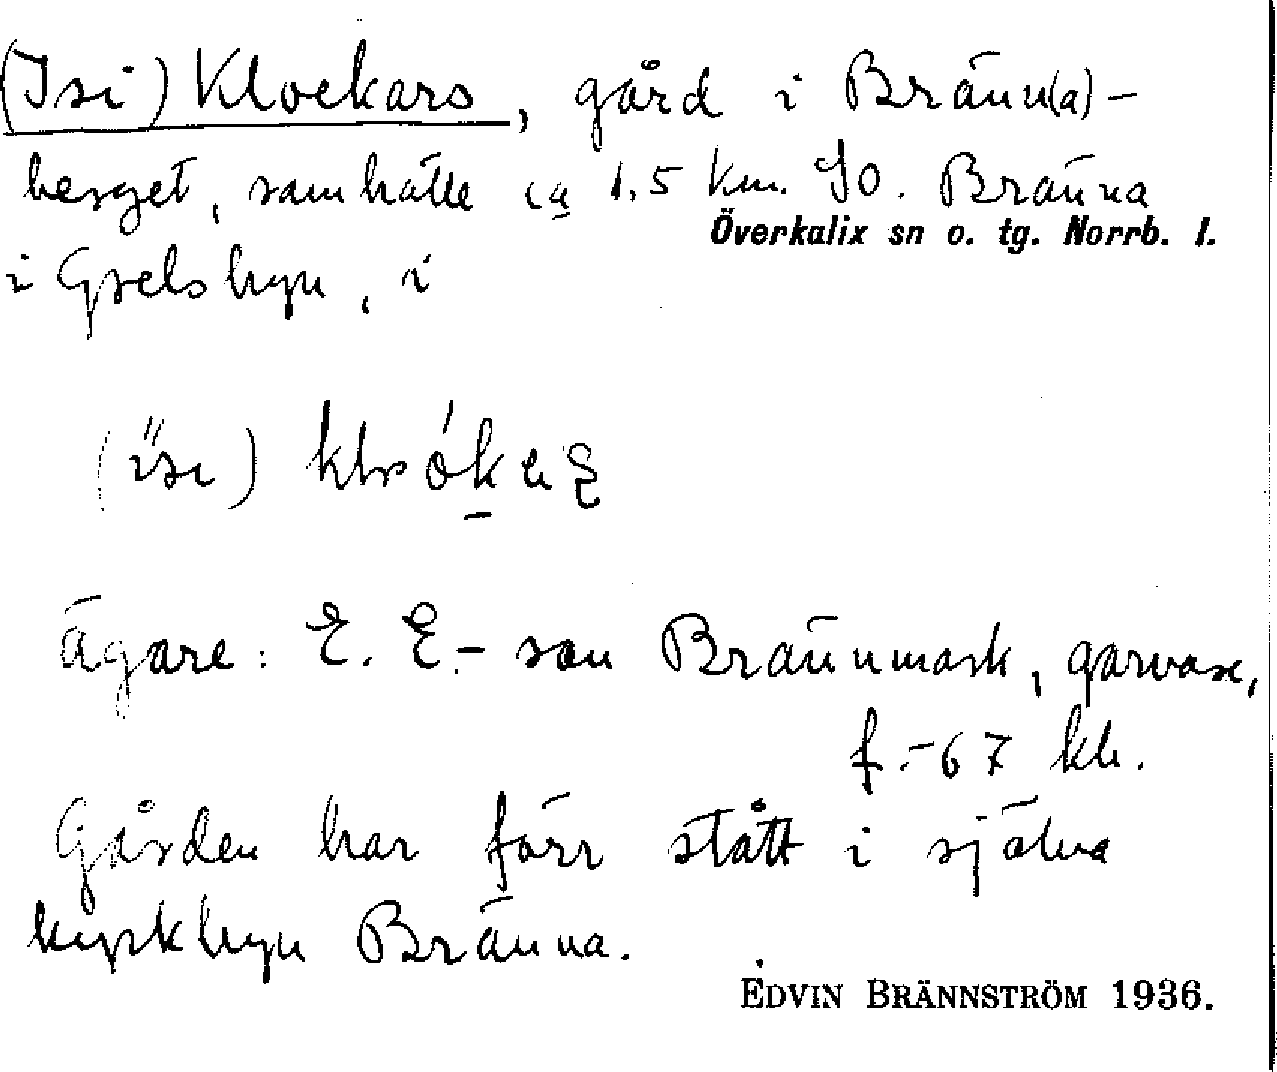 (Isi) Klockars, gård i Bränn(a)-
berget, samhälle ca 1,5 km. SO. Bränna
Överkalix sn o. tg. Norrb. l.
i Grelsbyn, i
Ägare: E. E.-son Brännmark, garvare,
f. -67 kb.
Gården har förr stått i själva
kyrkbyn Bränna.
EDVIN BRÄNNSTRÖM 1936.